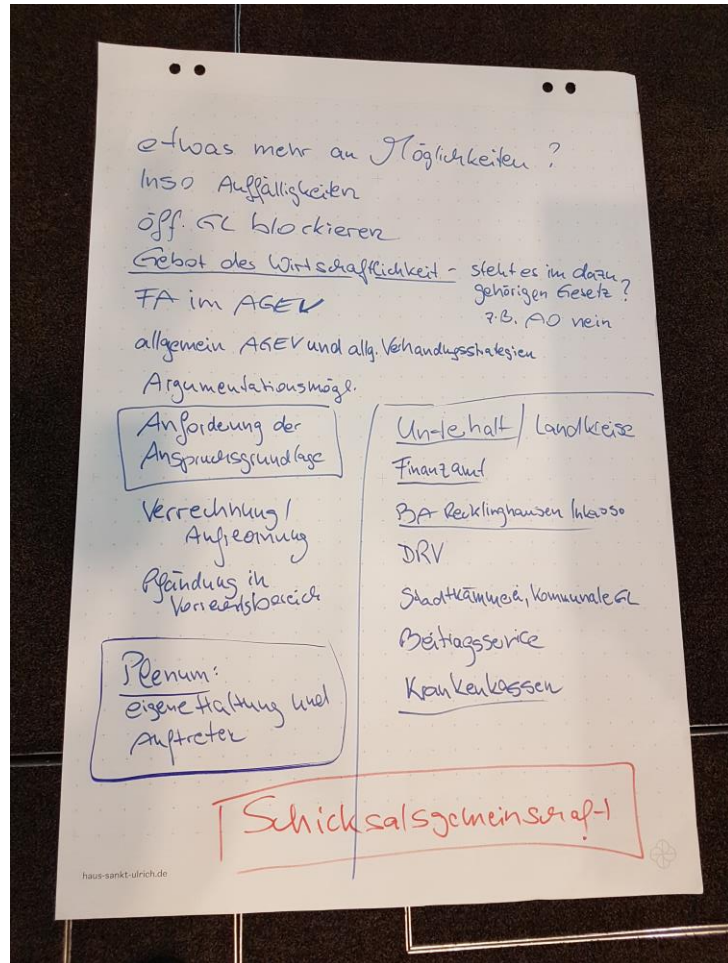 etwas mehr an Möglichkeiten ?
InsO Auffälligkeiten
öff. GL blockieren
Gebot des Wirtschaftlichkeit - steht es im dazu
gehörigen Gesetz ?
z.B. AO nein
FA im AGEV
allgemein AGEV und allg. Verhandlungsstrategien
Argumentationsmögl.
Anforderung der
Anspruchsgrundlage
Verrechnung /
Aufrechnung
Pfändung in
Vorrechtsbereich
Plenum:
eigene Haltung und
Auftreten
Unterhalt / Landkreise
Finanzamt
BA Recklinghausen Inkasso
DRV
Stadtkämmerei, Kommunale GL
Beitragsservice
Krankenkassen
Schicksalsgemeinschaft
haus-sankt-ulrich.de